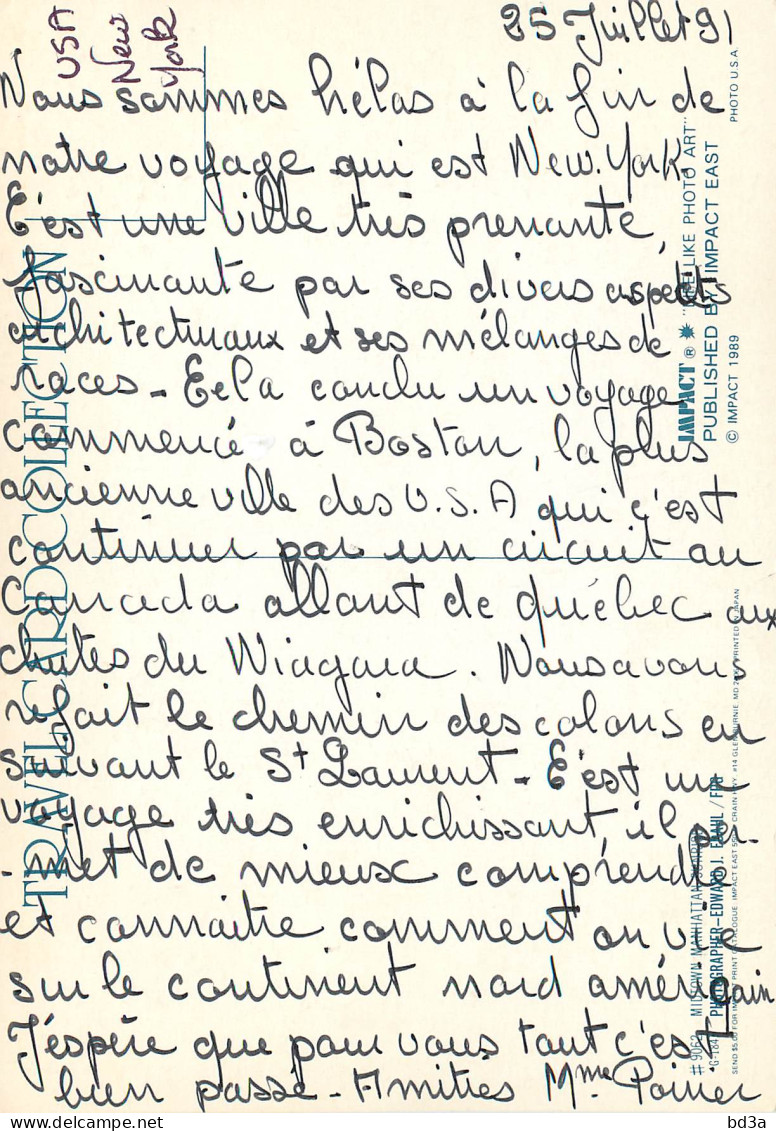 25 Juillet 91
USA
New
York
Nous sommes hélas à la fin de
notre voyage qui est New.York.
C'est une ville très prenante,
fascinante par ses divers aspects
architecturaux et ses mélanges de
races - Cela conclu un voyage
commencé à Boston, la plus
ancienne ville des U.S.A qui c'est
continuer par un circuit au
Canada allant de québec aux
chutes du Niagara. Nous avons
refait le chemin des colons en
suivant le St Laurent - C'est un
voyage très enrichissant, il per-
-met de mieux comprendre
et connaitre comment on vie
sur le continent nord américain
J'espère que pour vous tout c'est
bien passé - Amitiés Mme Poirier
TRAVEL CARD COLLECTION
PHOTO U.S.A.
IMPACT ® "LIKE PHOTO ART"
PUBLISHED BY IMPACT EAST
© IMPACT 1989
#9062 MIDTOWN MANHATTAN
PHOTOGRAPHER-EDWARD J. / FPG
PRINTED IN JAPAN